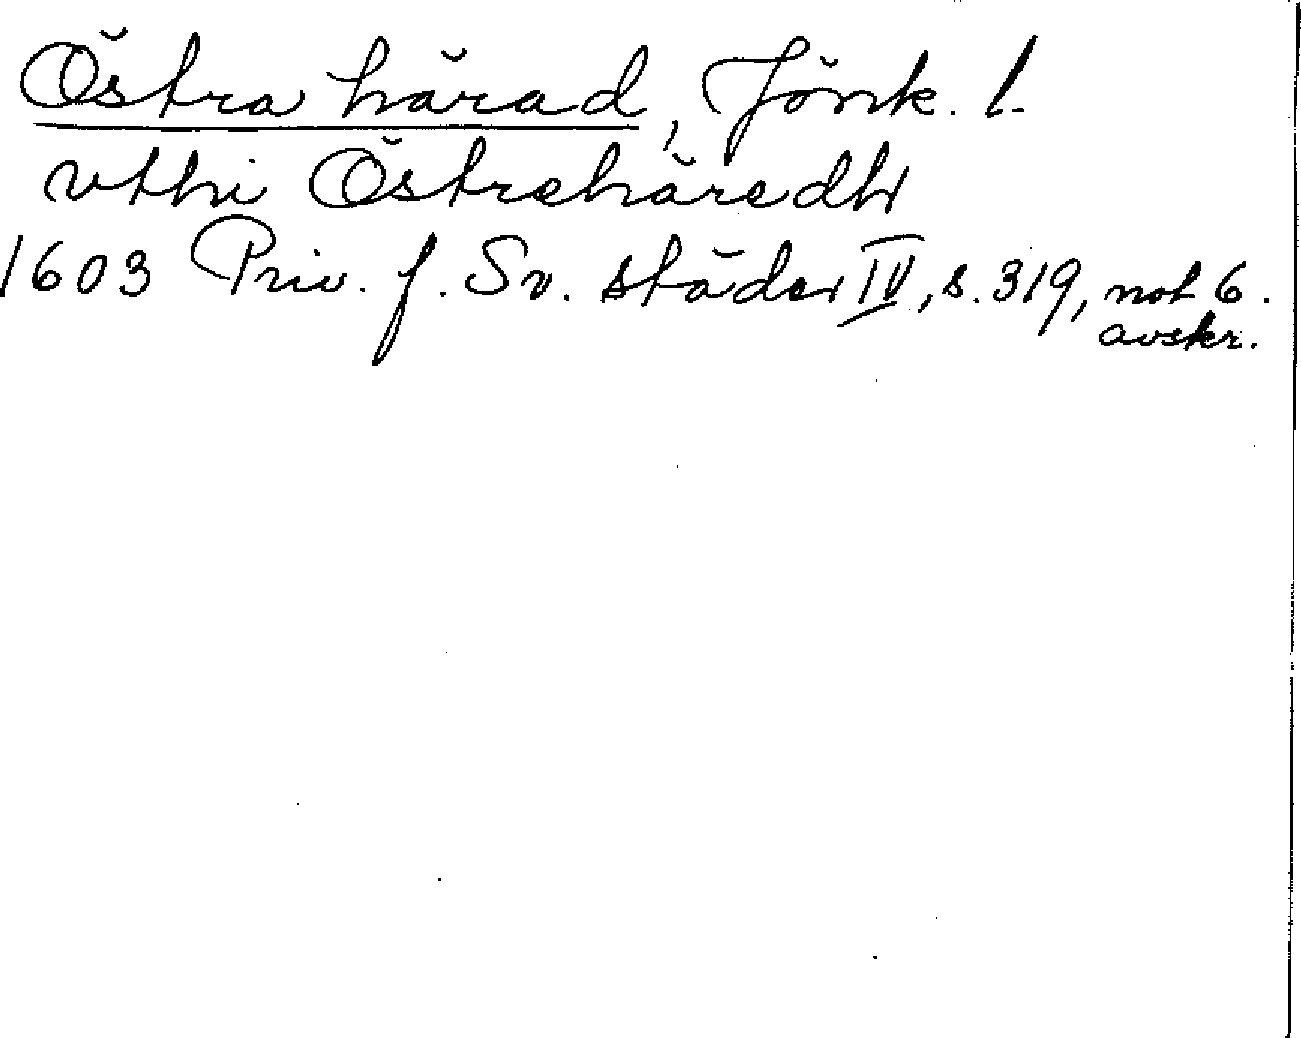 Östra härad, Jönk. l.
vthi Östrehäredh
1603 Priv. f. Sv. städer IV, s. 319, not 6.
avskr.